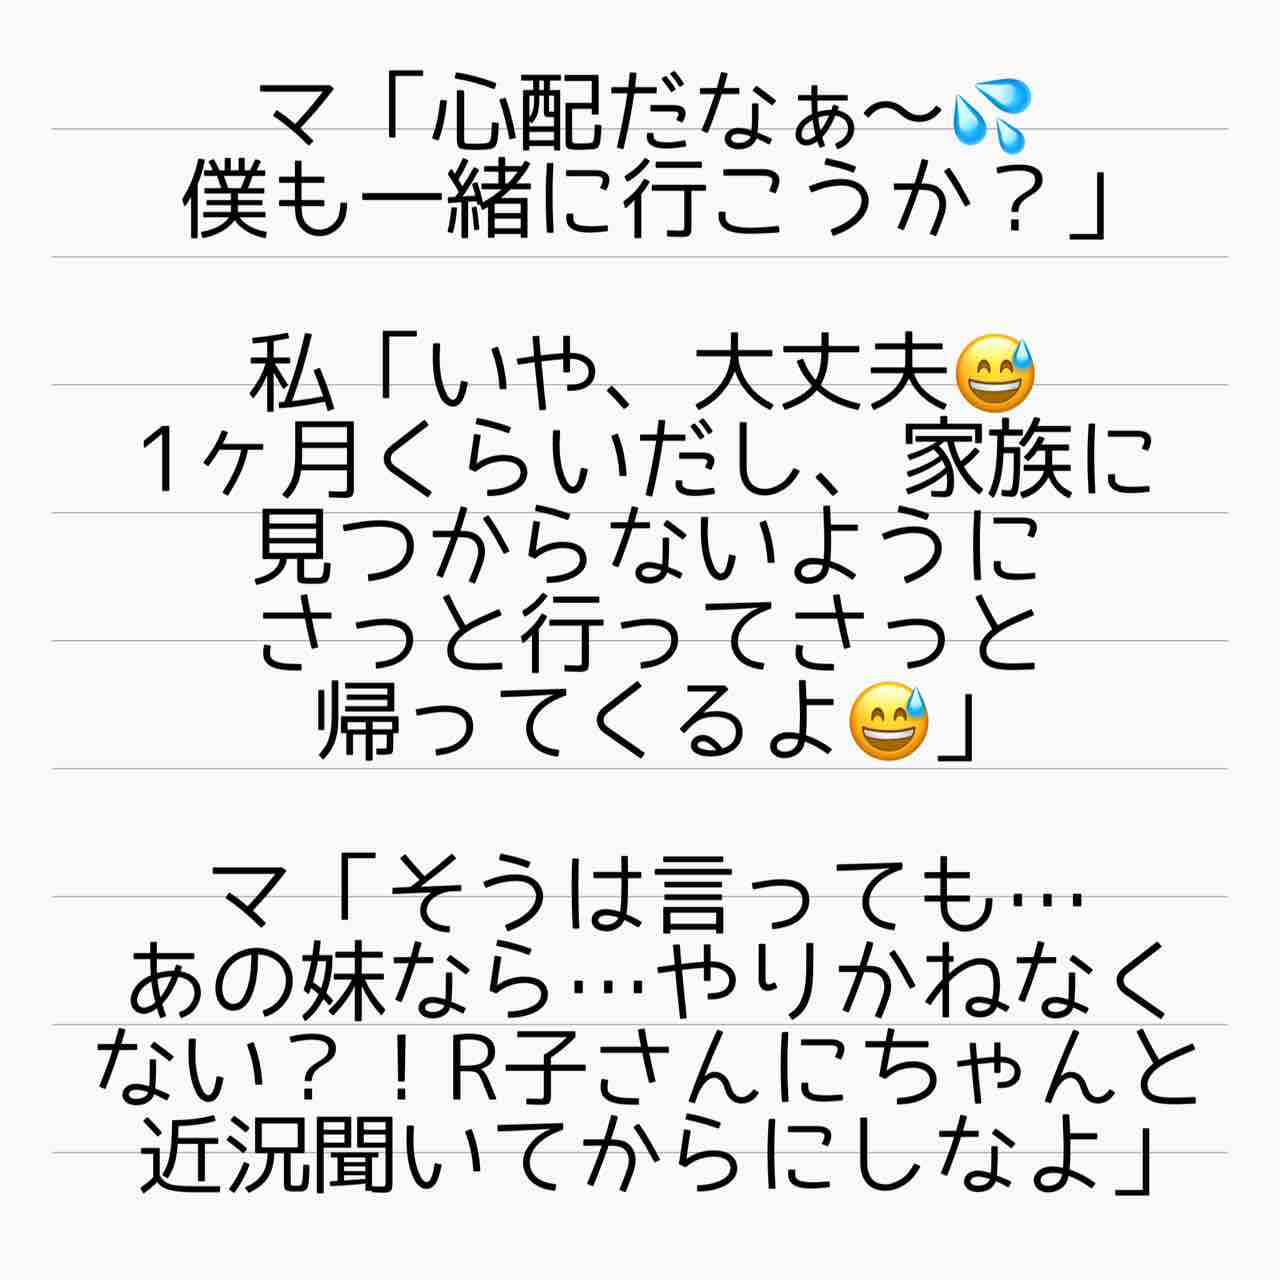 マ「心配だなぁ〜💦
僕も一緒に行こうか？」
私「いや、大丈夫😅
1ヶ月くらいだし、家族に
見つからないように
さっと行ってさっと
帰ってくるよ😅」
マ「そうは言っても…
あの妹なら…やりかねなく
ない？！R子さんにちゃんと
近況聞いてからにしなよ」